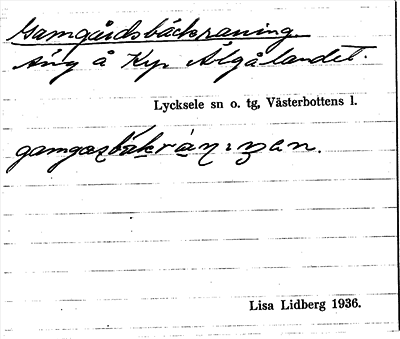 Gamgårdsbäcksraning
äng å Kyr. Älgålandet.
Lycksele sn o. tg, Västerbottens l.
Lisa Lidberg 1936.